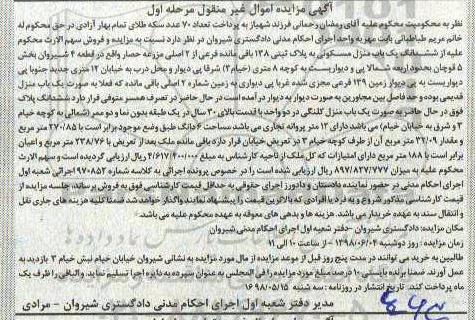 آگهی مزایده اموال غیر منقول مرحله اول
نظر به محکومیت محکوم علیه آقای رمضان رحمانی فرزند شهباز به پرداخت تعداد ۷۰ عدد سکه طلای تمام بهار آزادی در حق محکوم له
خانم مریم طباطبائی بابت مهریه واحد اجرای احکام مدنی دادگستری شیروان در نظر دارد نسبت به مزایده و فروش سهم الارث محکوم
علیه از ششدانگ یک باب منزل مسکونی به پلاک ثبتی ۱۳۸ باقی مانده فرعی از ۲ اصلی مزرعه حصار واقع در قطعه ۴ شیروان بخش
۵ قوچان بحدود اربعه شمالا پی و دیواریست به کوچه ۸ متری (خیام۳) شرقا پی دیوار و محل درب به خیابان ۱۲ متری جدید جنوبا پی
دیوار یست به پی دیوار زمین ۱۳۹ فرعی مجزی شده غربا پی دیواری به زمین شماره ۲ اصلی باقی مانده که فعلا به صورت یک باب منزل
قدیمی بوده و حد فاصل بین مجاورین به صورت دیوار به دیوار در آمده است در حال حاضر در تصرف همسر متوفی قرار دارد ششدانگ پلاک
فوق در حال حاضر به صورت یک باب منزل کلنگی در دو واحد با قدمت بالای ۳۰ سال در یک طبقه بدون نما و دو ممر (شمالی به کوچه خیام
۳ و شرق به خیابان خیام) می‌باشد دارای ۱۳ متر پروانه تجاری می باشد مساحت ۶ دانگ طبق وضع موجود برابر است با ۲۷۰/۸۵ متر مربع و
مقدار ۳۲/۰۹ متر مربع آن از طرف کوچه خیام ۳ در تعریض خیابان قرار دارد باقی مانده ملک بعد از تعریض برابر است با ۲۳۸/۷۶ متر مربع و اعیان
برابر است با ۱۸۸ متر مربع دارای امتیازات که کل ملک از ناحیه کارشناس به مبلغ ۴/۶۱۷/۴۰۰/۰۰۰ ریال ارزیابی گردیده است و سهم الارث
محکوم علیه به میزان ۸۹۷/۸۲۷/۷۷۷ ریال ارزیابی شده است را در خصوص پرونده اجرائی به کلاسه شماره ۹۷۰۸۵۲ اجرائی شعبه اول
اجرای احکام مدنی در حضور نماینده دادستان و دادورز اجرای حقوقی به حداقل قیمت کارشناسی فوق به فروش برساند، جلسه مزایده از
قیمت کارشناسی مذکور شروع و به فرد یا افرادی که بالاترین قیمت را پیشنهاد نمایند واگذار خواهد شد ضمنا کلیه هزینه های جاری نقل
و انتقال سند به عهده خریدار می باشد. هزینه ها و بدهی های معوقه به عهده محکوم علیه می باشد.
مکان مزایده: دفتر شعبه اول اجرای احکام مدنی شیروان
زمان مزایده: روز دوشنبه ۱۳۹۸/۰۶/۰۴ - از ساعت ۱۰ الی ۱۱
طالبین به خرید می توانند در مدت پنج روز قبل از موعد مزایده از مال مورد مزایده به نشانی شیروان خیابان خیام نبش خیام ۳ بازدید به
عمل آورند. ضمنا برنده بایستی ۱۰ درصد مبلغ مورد مزایده را فی المجلس به عنوان سپرده به دایره اجرا تسلیم نماید. والباقی را ظرف یک
ماه پرداخت کند. تاریخ انتشار در روزنامه: سه شنبه ۹۸/۰۵/۱۵
مدیر دفتر شعبه اول اجرای احکام مدنی دادگستری شیروان - مرادی